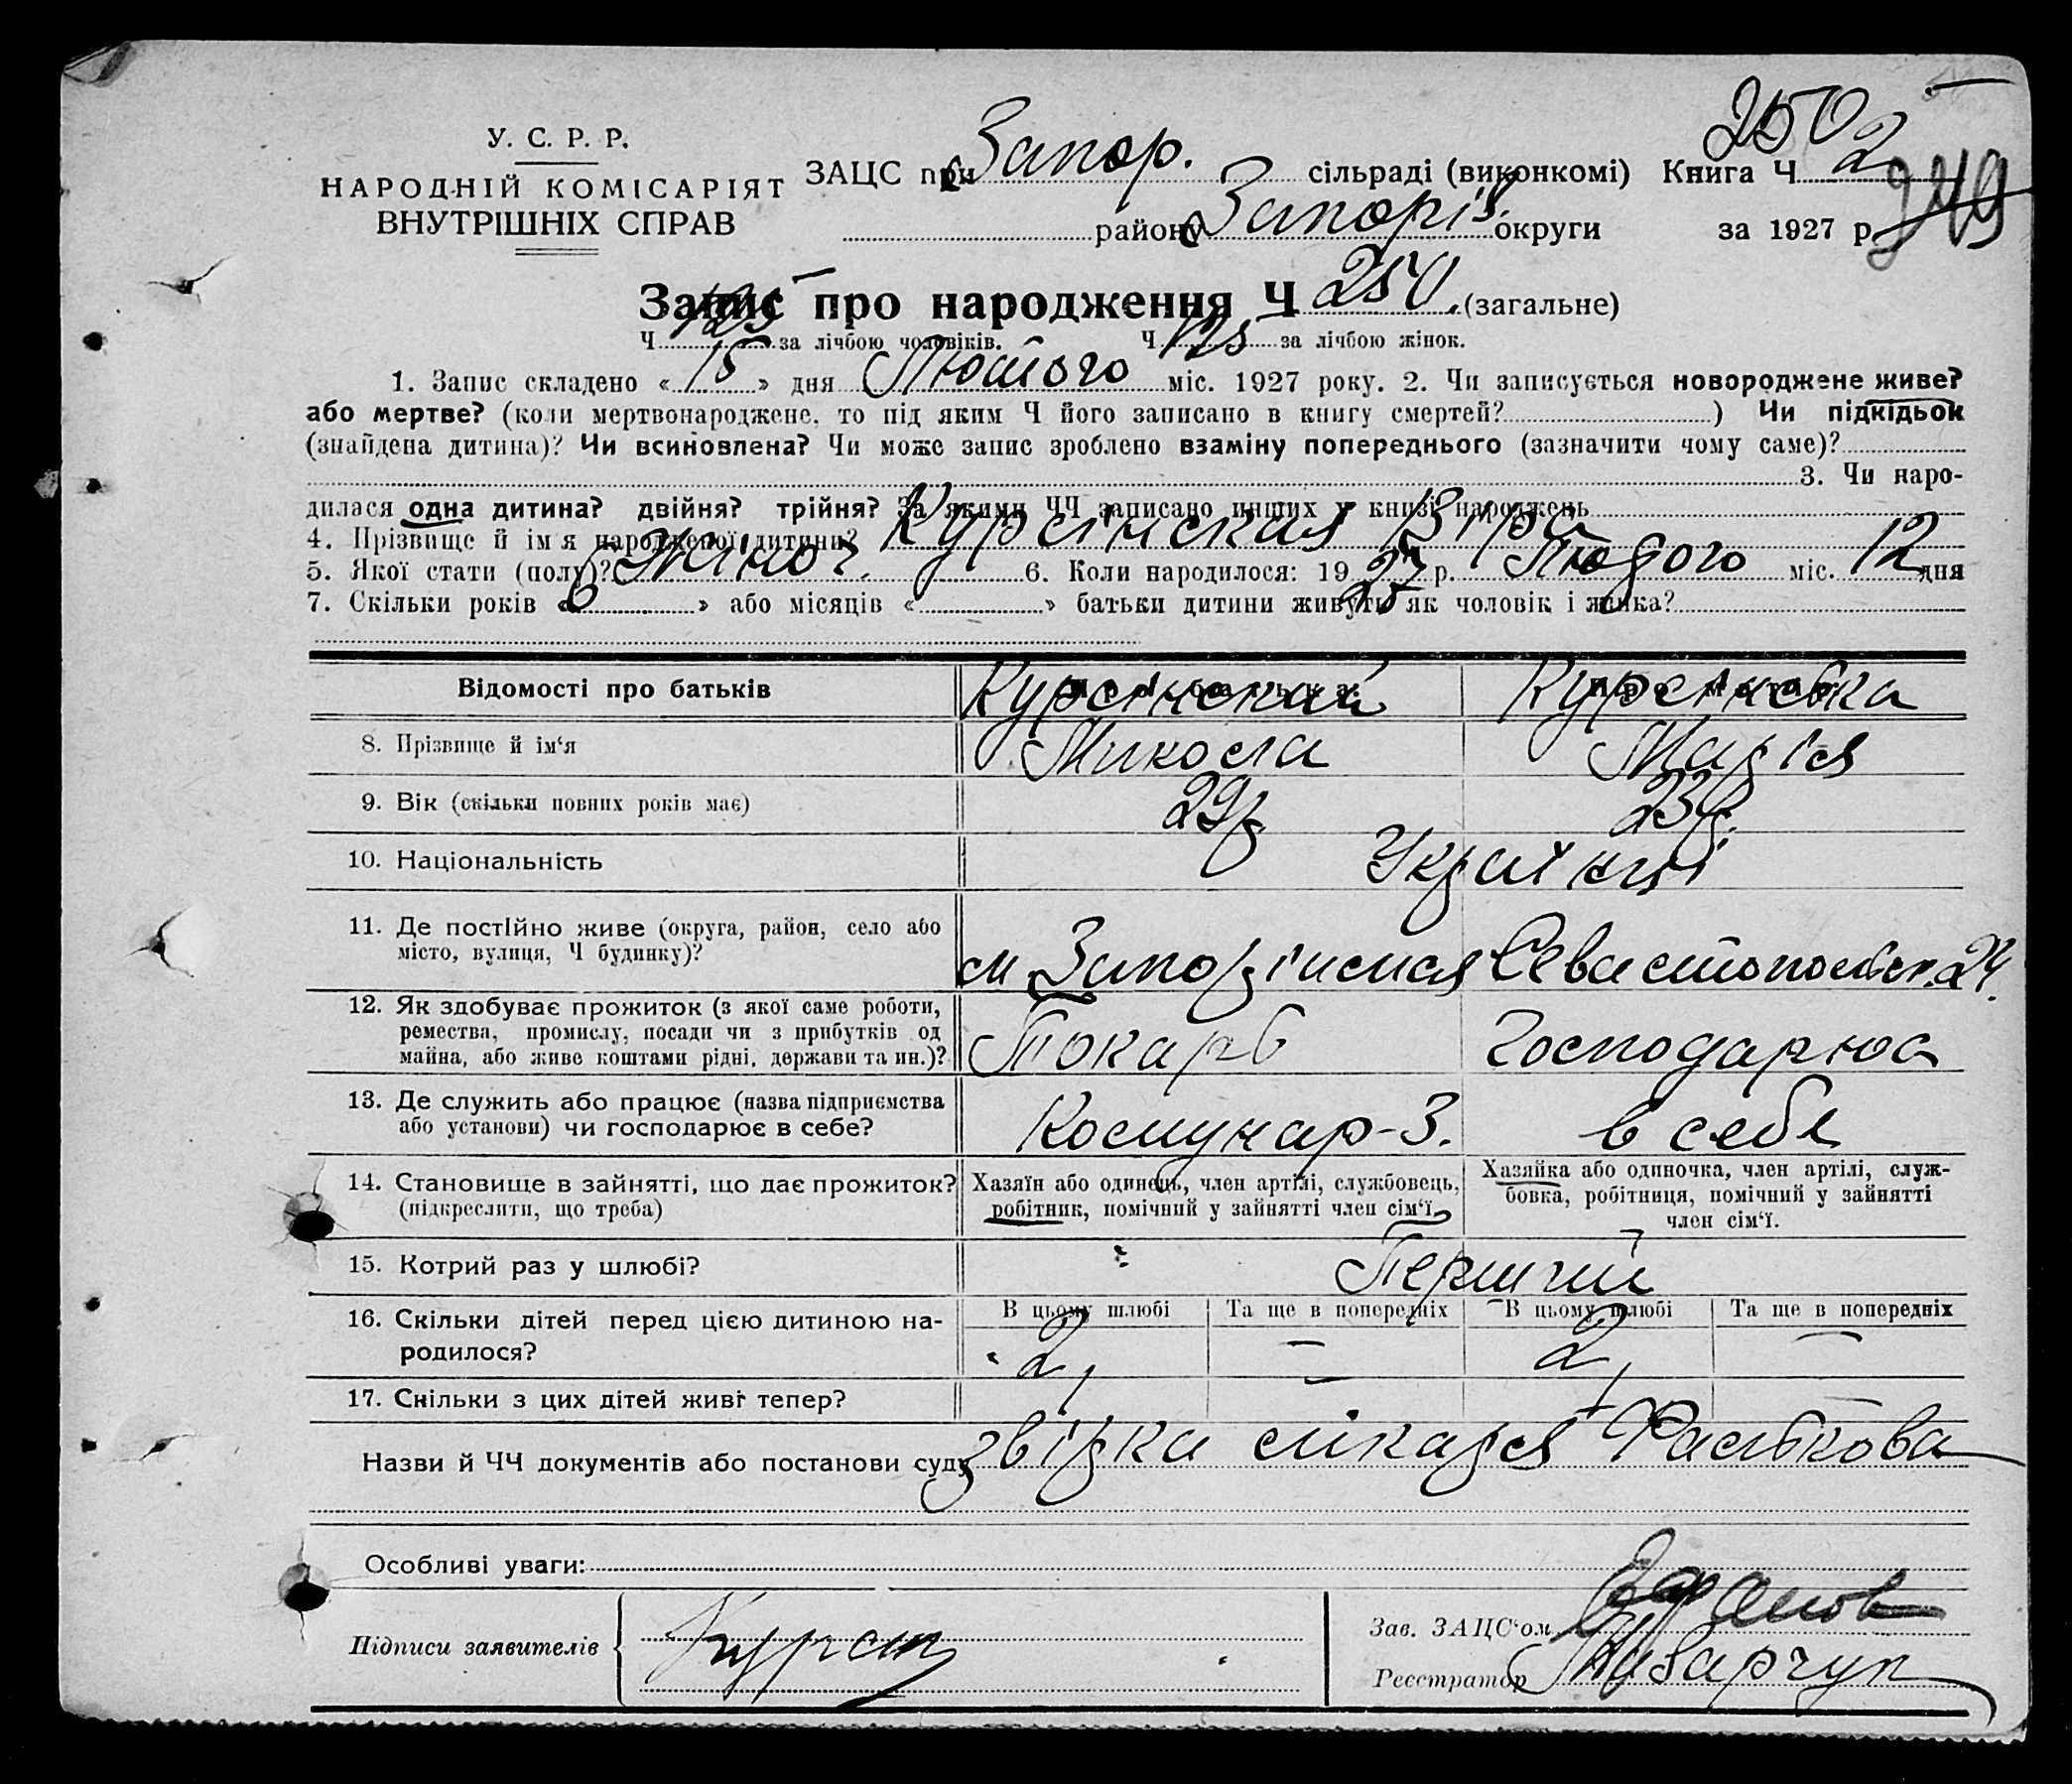 250
У. С. Р. Р.
НАРОДНІЙ КОМІСАРІЯТ
ВНУТРІШНІХ СПРАВ
ЗАЦС при Запор. сільраді (виконкомі) Книга Ч 2
249
району Запоріз. округи за 1927 р.
Запис про народження Ч 250. (загальне)
Ч 125 за лічбою чоловіків. Ч 125 за лічбою жінок.
1. Запис складено « 15 » дня Лютого міс. 1927 року. 2. Чи записується новороджене живе?
або мертве? (коли мертвонароджене, то під яким Ч його записано в книгу смертей? ) Чи підкідьок
(знайдена дитина)? Чи всиновлена? Чи може запис зроблено взаміну попереднього (зазначити чому саме)?
3. Чи наро-
дилася одна дитина? двійня? трійня? За якими ЧЧ записано инших у книзі народжень
4. Прізвище й ім я народженої дитини? Курсінская Віра
5. Якої стати (полу)? Жіноч. 6. Коли народилося: 19 27 р. Лютого міс. 12 дня
7. Скільки років « 6 » або місяців « » батьки дитини живуть як чоловік і жінка?
Відомості про батьків Курсінский Курсінська
8. Прізвище й ім‘я Микола Марія
9. Вік (скільки повних років має) 29р. 23р.
10. Національність Українці
11. Де постійно живе (округа, район, село або
місто, вулиця, Ч будинку)? м Запоріжжя Севастопольск. 24.
12. Як здобуває прожиток (з якої саме роботи,
ремества, промислу, посади чи з прибутків од
майна, або живе коштами рідні, держави та ин.)? Токарь Господарює
13. Де служить або працює (назва підприємства
або установи) чи господарює в себе? Комунар-З. в себе
14. Становище в зайнятті, що дає прожиток?
(підкреслити, що треба)
Хазяїн або одинець, член артілі, службовець,
робітник, помічний у зайнятті член сім‘ї.
Хазяйка або одиночка, член артілі, служ-
бовка, робітниця, помічний у зайнятті
член сім‘ї.
15. Котрий раз у шлюбі? Перший
16. Скільки дітей перед цією дитиною на-
родилося?
В цьому шлюбі Та ще в попередніх В цьому шлюбі Та ще в попередніх
2 — 2 —
17. Скільки з цих дітей живі тепер? 1 — 1 —
Назви й ЧЧ документів або постанови суду звірка лікаря
Особливі уваги:
Підписи заявителів Курсін
Зав. ЗАЦС‘ом
Реєстратор